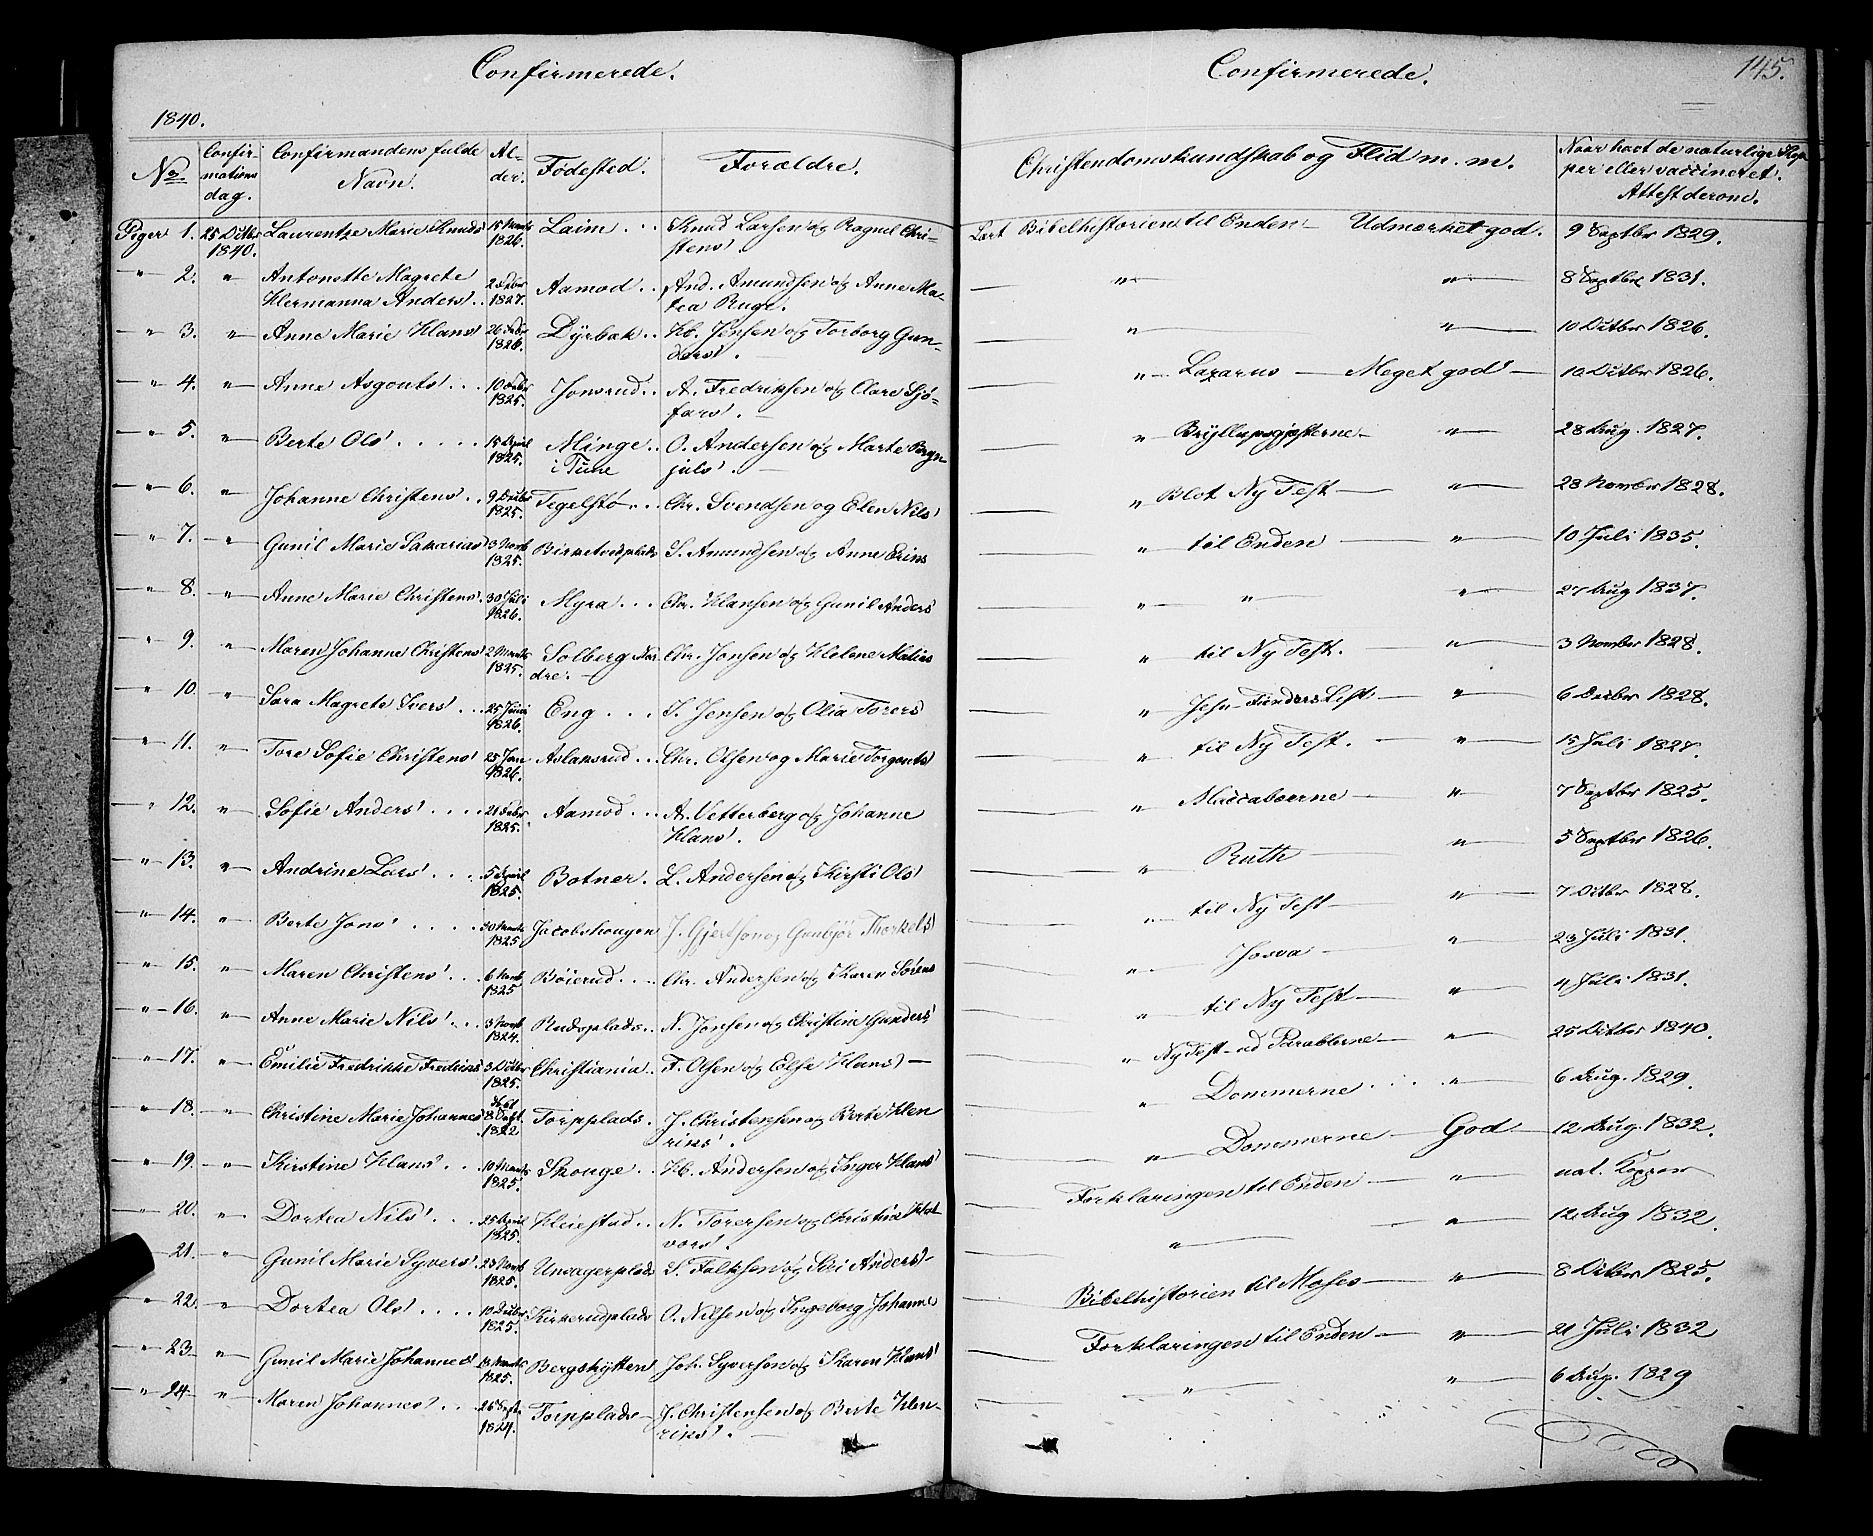 Confirmerede.
1840.
No. Confirmations dag. Confirmandens fulde Navn. Alder. Fødested. Forældre.
Piger 1. 25 Octbr 1840. Laurentze Marie Knuds' 1826. Laim Knud Larsen og Ragnel Christens'.
" 2. " Antonette Magrete Hermanna Anders' 1827. Aamod And. Amundsen og Anne Matea Ruge.
" 3. " Anne Marie Hans' 1826. Dyrbak Hs. Jensen og Torborg Gunders'.
" 4. " Anne Asgouts' 1825. Jonsrud A. Fredriksen og Clare Sjøfars'.
" 5. " Berte Ols' 15 April 1825. Minge i Tune O. Andersen og Marte Brynjuls'.
" 6. " Johanne Christens' 1825. Tegelstø Chr. Svendsen og Elen Nils'
" 7. " Gunil Marie Sakarias' 1825. Birketvedplads S. Amundsen og Anne Eriks
" 8. " Anne Marie Christens' 30 Juli 1826. Myra Chr. Hansen og Gunil Anders
" 9. " Maren Johanne Christens' 1825. Solberg Nordre Chr. Jonsen og Helene Matias
" 10. " Sara Magrete Ivers' 25 Juni 1826. Eng I. Jensen og Olia Torers
" 11. " Tore Sofie Christens' 25 Jan 1826. Aslansrud Chr. Olsen og Marie Torgouts'
" 12. " Sofie Anders' 1825. Aamod A. Vetterberg og Johanne Hans'.
" 13. " Andrine Lars' 5 April 1825. Botner L. Andersen og Kirsti Ols'
" 14. " Berte Jons' 1825 Jacobshougen J. Gjertsen og Gunbjør Thorkels'
" 15. " Maren Christens' 1825 Bøierud Chr. Andersen og Karen Sørens
" 16. " Anne Marie Nils' 1824. Rudsplads N. Jonsen og Christine Gunders'
" 17. " Emilie Fredrikke Fredriks 1825. Christiania F. Olsen og Else Hans'
" 18. " Christine Marie Johannes' 1822 Torpplads J. Christensen og Berte Henriks'.
" 19. " Kirstine Hans' 1825. Skouge Hs. Andersen og Inger Hans'
" 20. " Dortea Nils' 25 April 1825. Heiestad N. Torersen og Christia Halvors'.
" 21. " Gunil Marie Syvers' 1825. Unsagerplads S. Falksen og Siri Anders'
" 22. " Dortea Ols' 1825. Kirkerudplads O. Nilsen og Ingeborg Johanne
" 23. " Gunil Marie Johannes' 1825. Bergshytten Joh. Syversen og Karen Hans'
" 24. " Maren Johannes' 26 Sept. 1824. Torpplads J. Christensen og Berte Henriks'.
Confirmerede. 145.
Christendomskundskab og Flid m. m. Naar havt de naturlige Kopper eller vaccineret. Attest derom.
Læst Bibelhistorien til Enden Udmærket god. 9 Septbr 1829.
" " 8 Septbr 1831.
" " 10 Octbr 1826.
" Lazarus Meget god 10 Octbr 1826.
" Bryllupsgjæsterne " 28 Aug. 1827.
" Blot Ny Test " 28 Novmbr 1828.
" til Enden " 10 Juli 1835.
" " " 27 Aug 1837.
" til Ny Test. " 3 Novmbr 1828.
" Jesu " 6 Decbr 1828.
" til Ny Test. " 15 Juli 1827.
" Maccabæerne " 7 Septbr 1825.
" Ruth " 5 Septbr 1826.
" til Ny Test " 7 Octbr 1828.
" Josva " 23 Juli 1831.
" til Ny Test " 4 Juli 1831.
" Ny Test ud Parablerne " 25 Octbr 1840.
" Dommerne " 6 Aug. 1829.
" Dommerne God 12 Aug. 1832.
Forklaringen til Enden " nat. Kopper
" " 12 Aug 1832.
Bibelhistorien til Moses " 8 Octbr 1825.
Forklaringen til Enden " 21 Juli 1832
" " 6 Aug. 1829